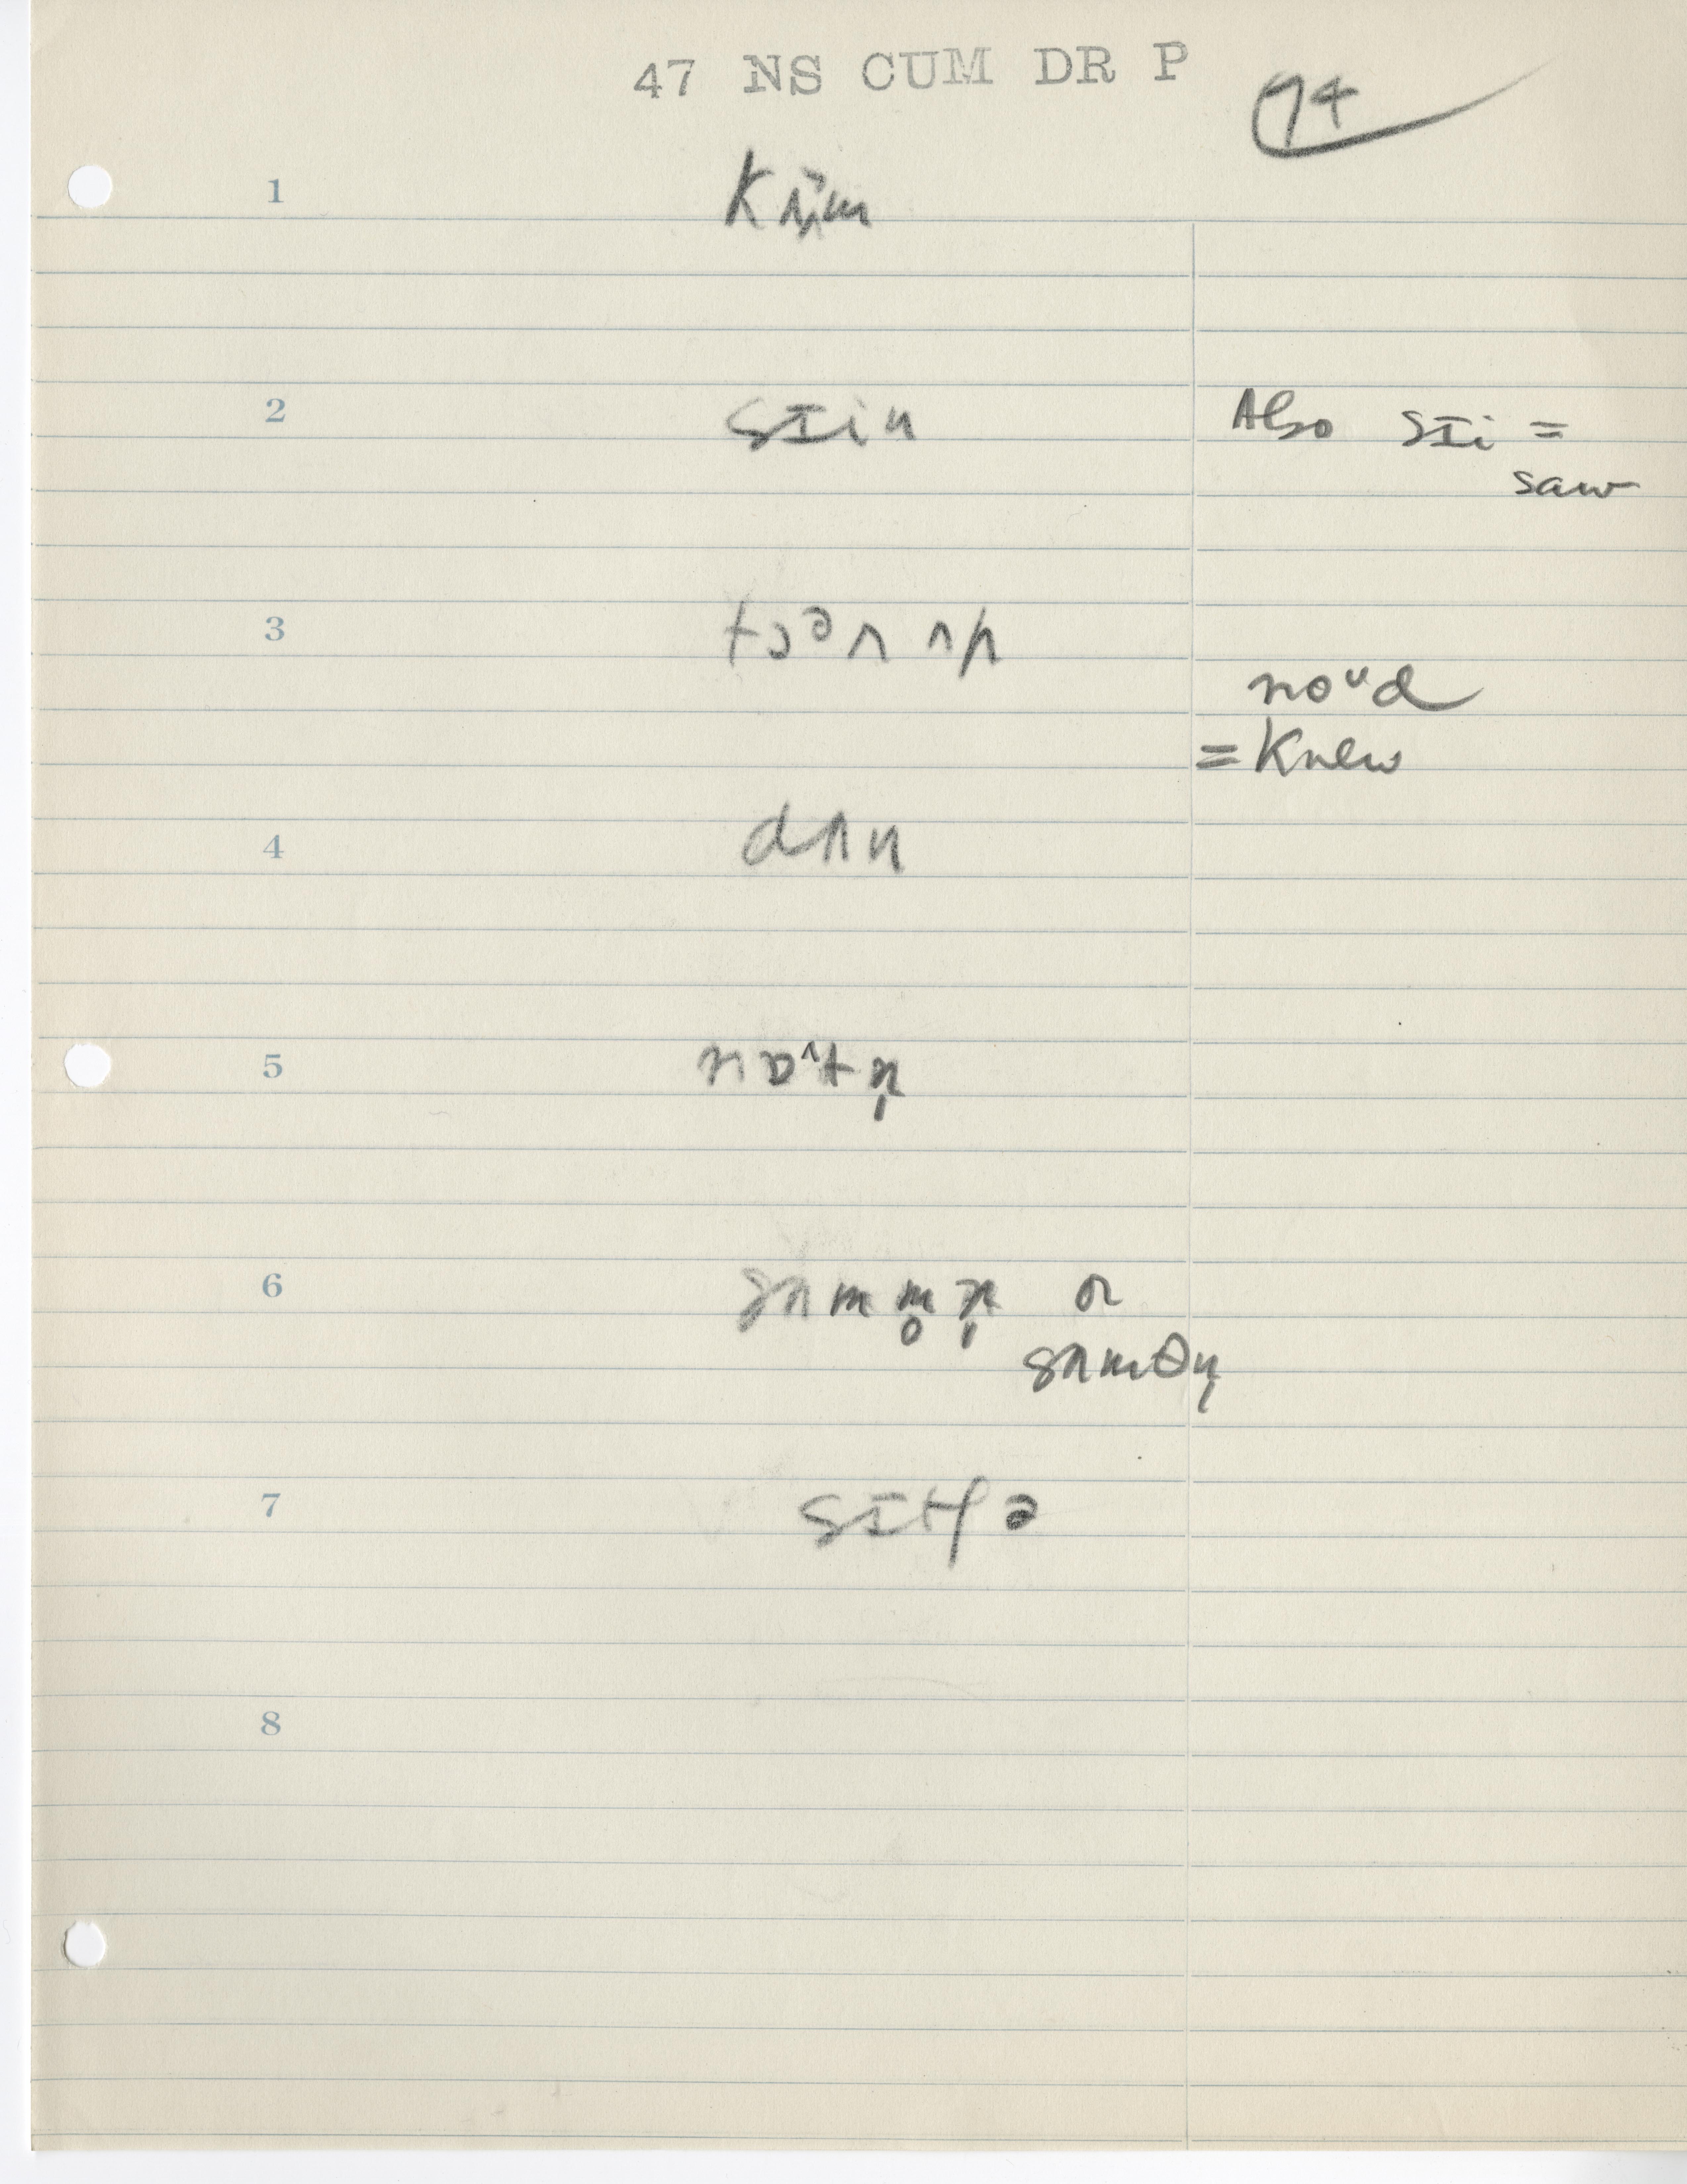 47 NS CUM DR P
74
1
2 sɪin Also sɪi =
saw
3 tɔᵊʌ ʌp
noᵘd
= Knew
4 dʌn
5 nɒ^tn̩
6 sʌmm̥n̩ or
sʌmθn̩
7
8